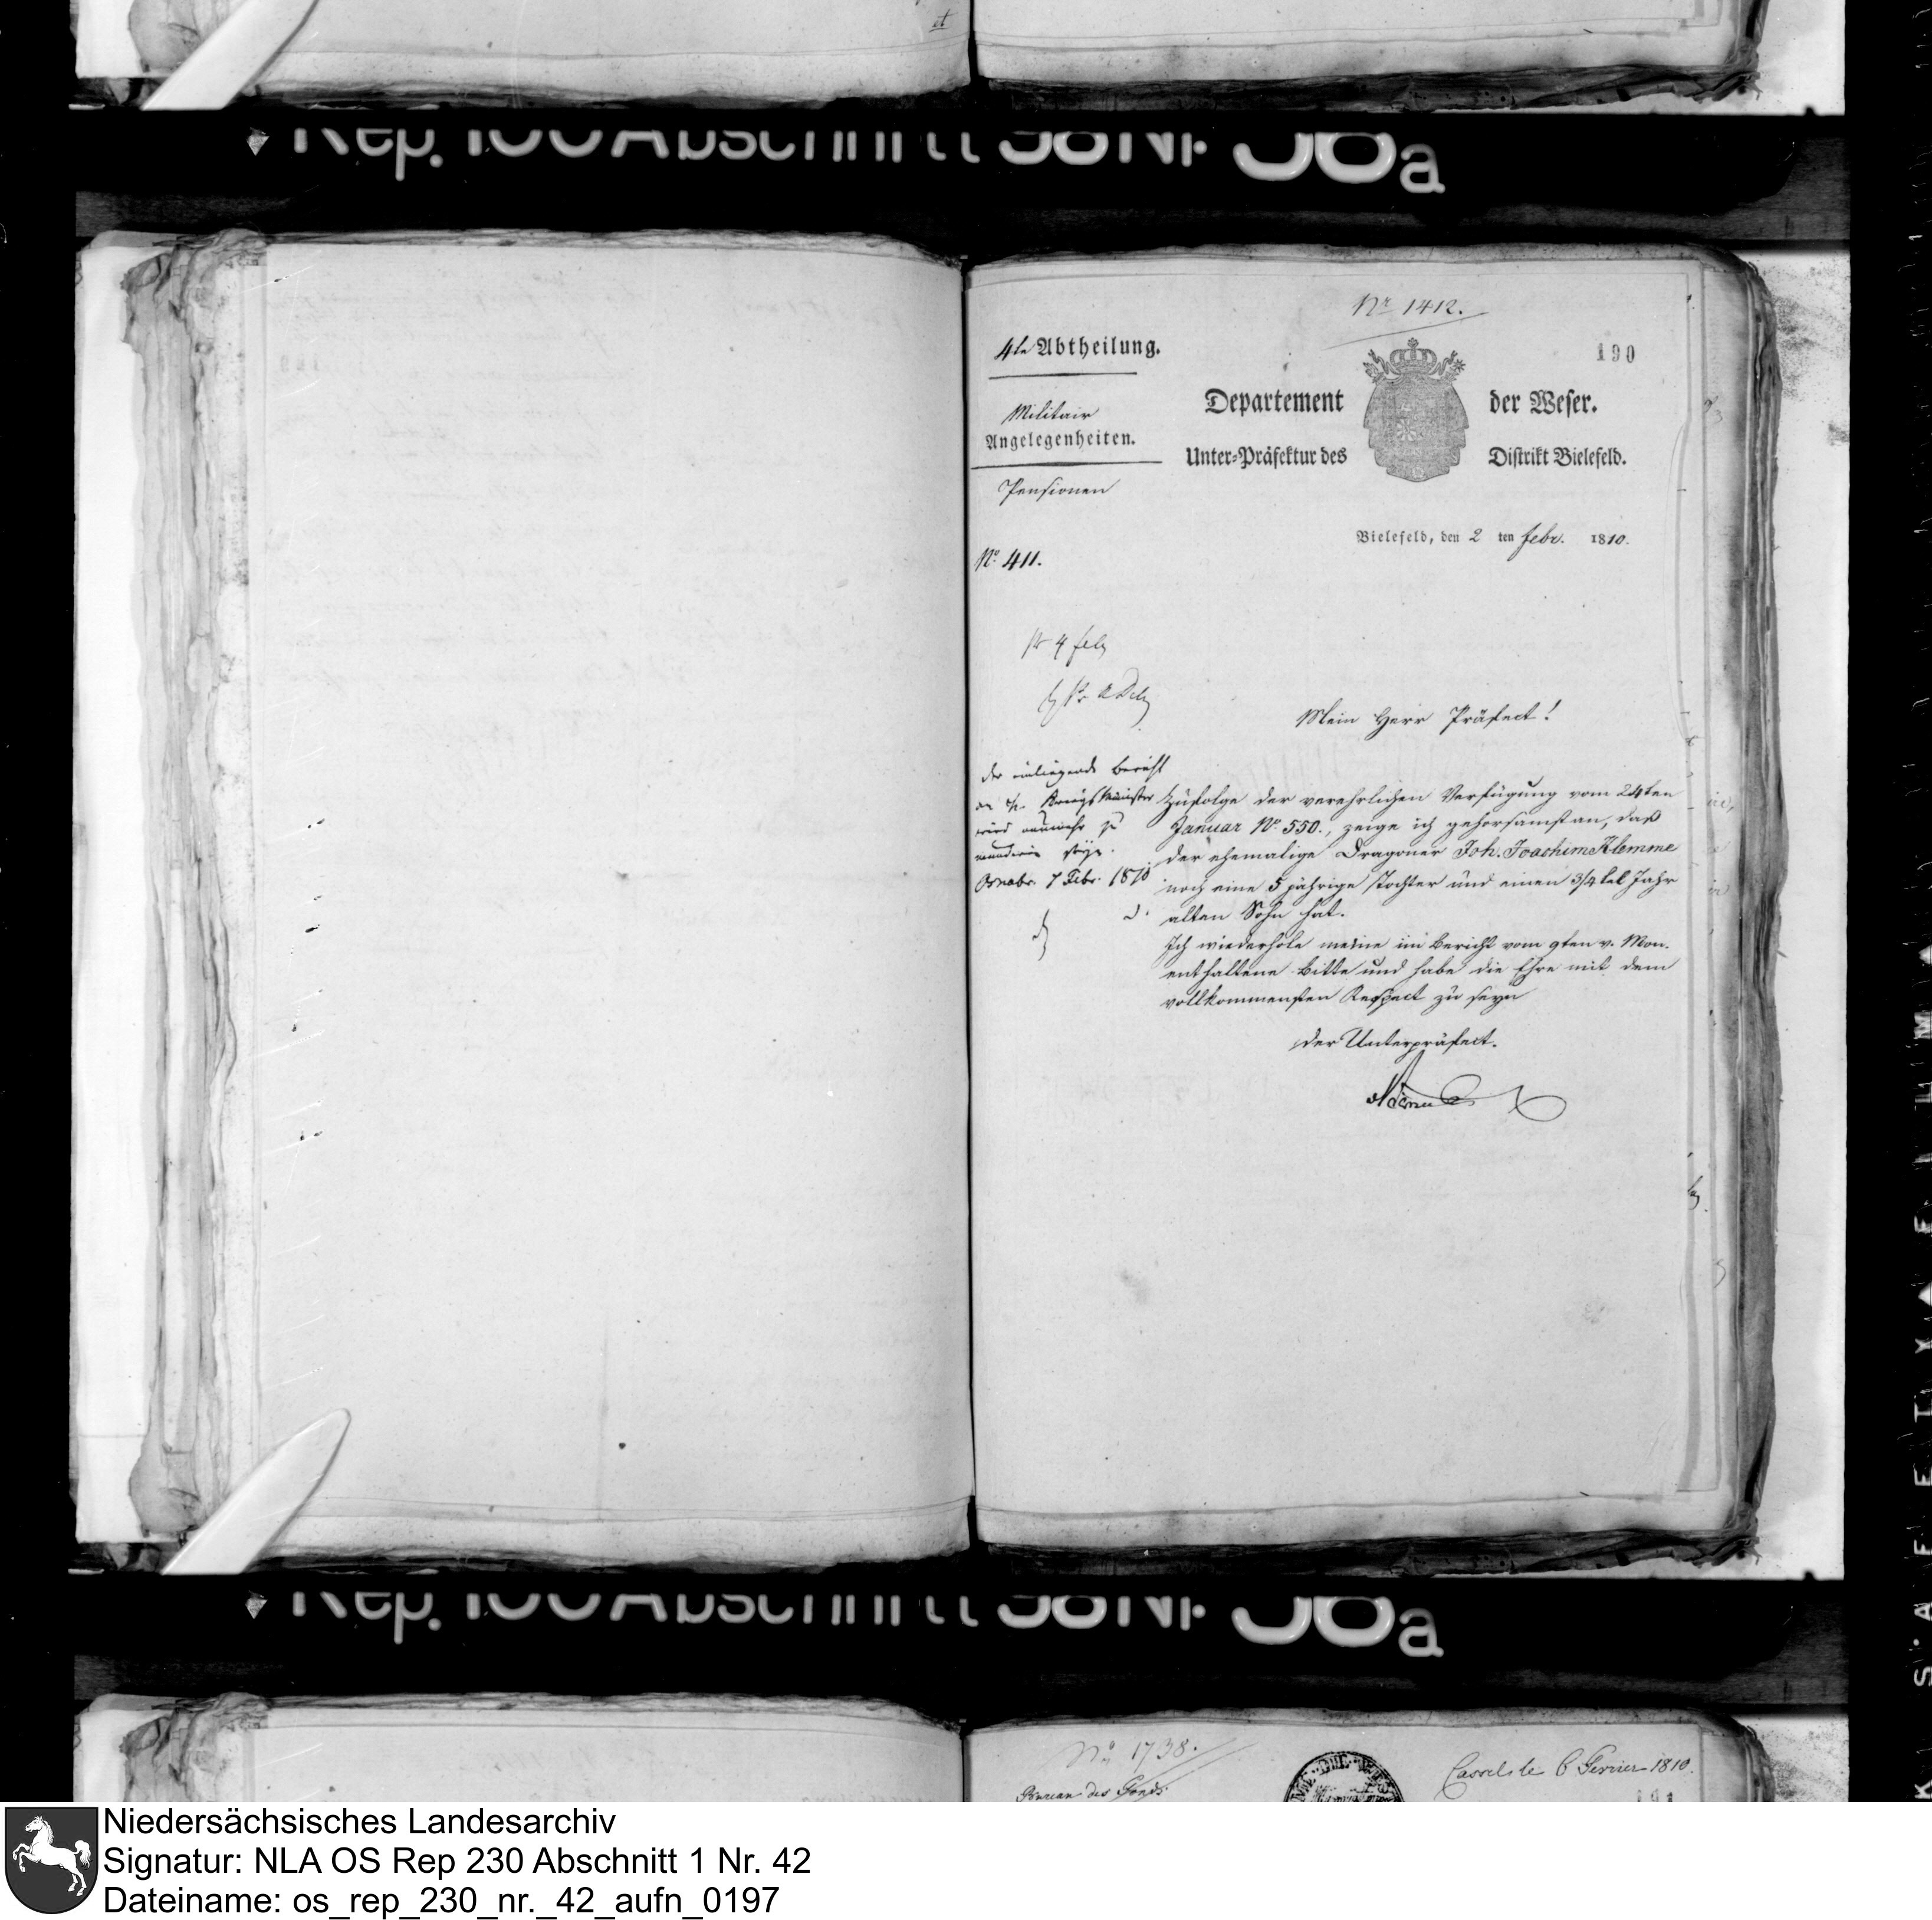 et
Rep. 100 Abschnitt 58 Nr 38a
Nr 1412.
4te Abtheilung.
190
Militair
Angelegenheiten.
Departement der Weser.
Unter-Präfektur des Distrikt Bielefeld.
Pensionen
Bielefeld, den 2 ten Febr. 1810.
No 411.
4 Feb
Mein Herr Präfect!
der einliegende Bericht
Kriegs Minister
wird nunmehr zu
seyn.
Osnabr. 7 Febr. 1810
Zufolge der verehrlichen Verfügung vom 24ten
Januar No 550., zeige ich gehorsamst an, daß
der ehemalige Dragoner Joh. Joachim Klemme
noch eine 5 jährige Tochter und einen 3/4tel Jahr
alten Sohn hat.
Ich wiederhole meine im Bericht vom 9ten v. Mon.
enthaltene Bitte und habe die Ehre mit dem
vollkommensten Respect zu seyn
der Unterpräfect.
Rep. 100 Abschnitt 58 Nr 38a
No 1738.
Bureau des Fonds
Cassel le 6 Fevrier 1810.
191
Niedersächsisches Landesarchiv
Signatur: NLA OS Rep 230 Abschnitt 1 Nr. 42
Dateiname: os_rep_230_nr._42_aufn_0197